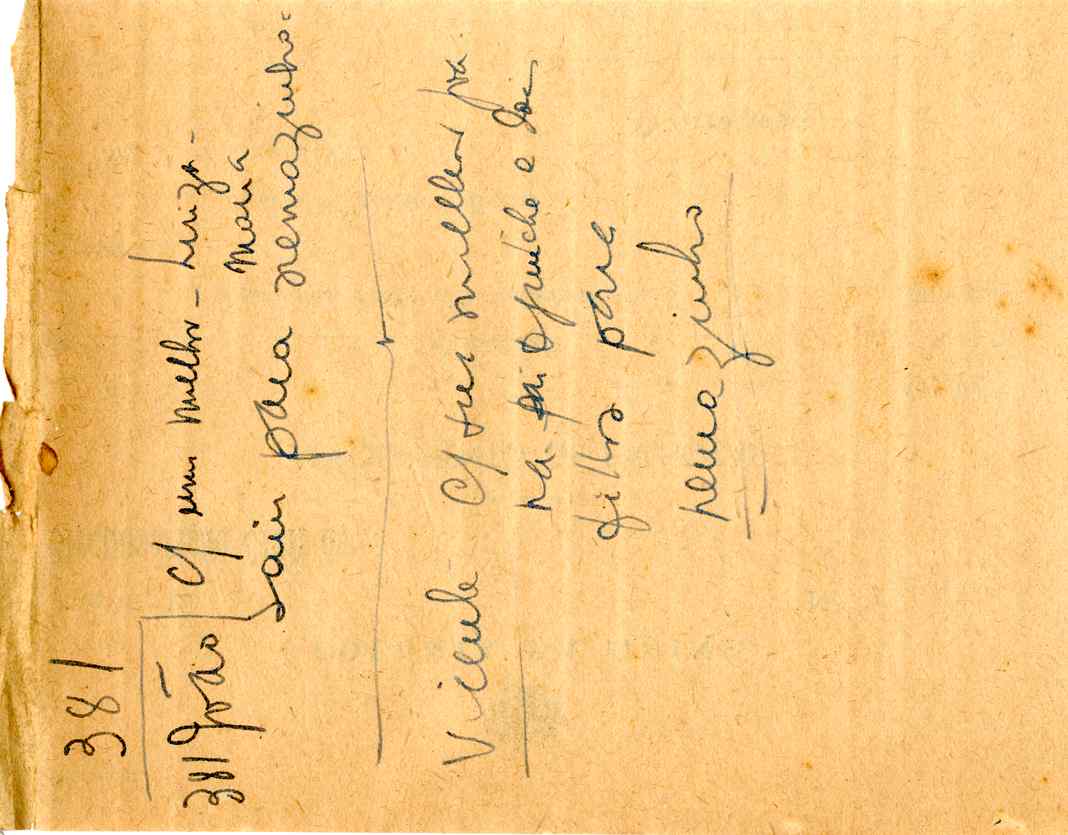 381
381 João C/ uma mulher - Luiza -
Maria
sair para remazinho:
Vicente C/ tres mulher pra
na e dois
filhos para
remazinho